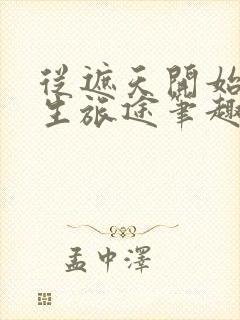 從遮天開始
生旅途筆趣
孟中澤